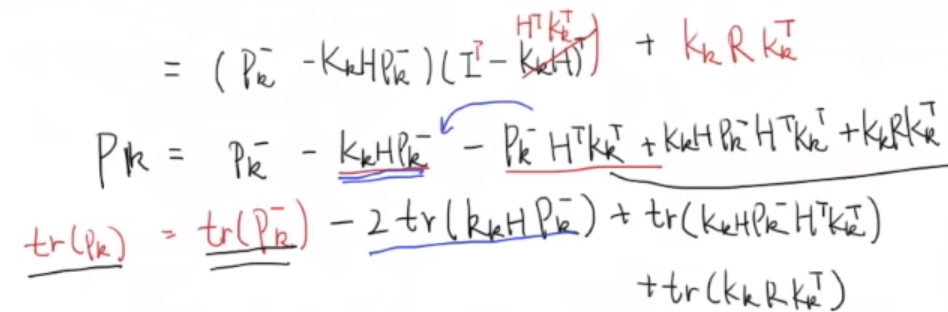 = (P_k^- - K_kHP_k^-)(I^T - K_kH)^T) H^TK_k^T + K_kRK_k^T
P_k = P_k^- - K_kHP_k^- - P_k^-H^TK_k^T + K_kHP_k^-H^TK_k^T + K_kRK_k^T
tr(P_k) = tr(P_k^-) - 2tr(K_kHP_k^-) + tr(K_kHP_k^-H^TK_k^T)
+ tr(K_kRK_k^T)